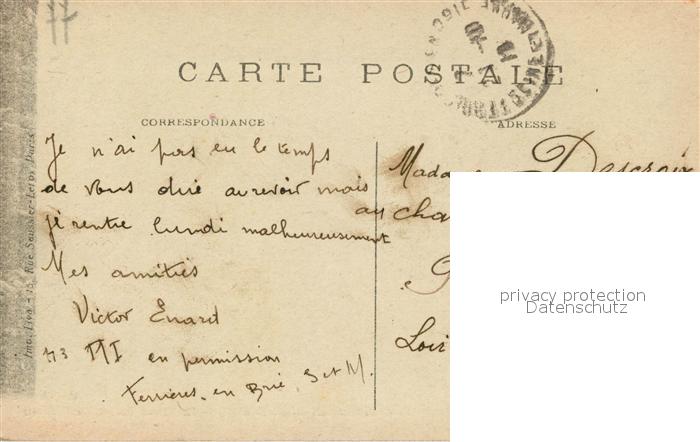 77
CARTE POSTALE
CORRESPONDANCE
ADRESSE
Je n'ai pas eu le temps
de vous dire au revoir mais
je rentre lundi malheureusement
Mes amitiés
Victor Enard
113 TTI en permission
Ferrières. en Brie, S et M.
Madame Descroix
au cha
Loir
privacy protection
Datenschutz